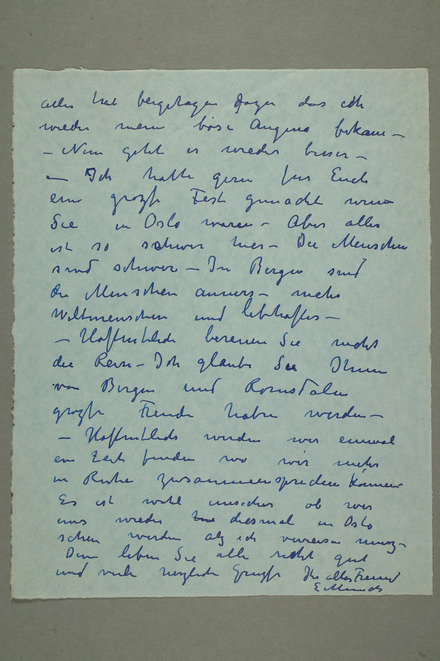 alles hat beigetragen dazu dass ich
wieder meine böse Angina bekam –
– Nun geht es wieder besser –
– Ich hatte gern für Euch
ein grozse Fest gemacht wenn
Sie in Oslo waren – Aber alles
ist so schwer hier – Die Menschen
sind schwer – In Bergen sind
die Menschen anners – mehr
Weltmenschen und lebhafter –
– Hoffentlich bereuen Sie nicht
die Reise – Ich glaube Sie Ihnen
von Bergen und Romsdalen
grozse Freude haben werden –
– Hoffentlich werden wir einmal
ein Zeit finden wo wir mehr
in Ruhe zusammensprechen können
Es ist wohl unsicher ob wir
uns wieder diesmal in Oslo
sehen werden als ich verreisen muss –
Dan leben Sie alle recht gut
und viele herzliche Grüsse Ihr alter Freund
E. Munch